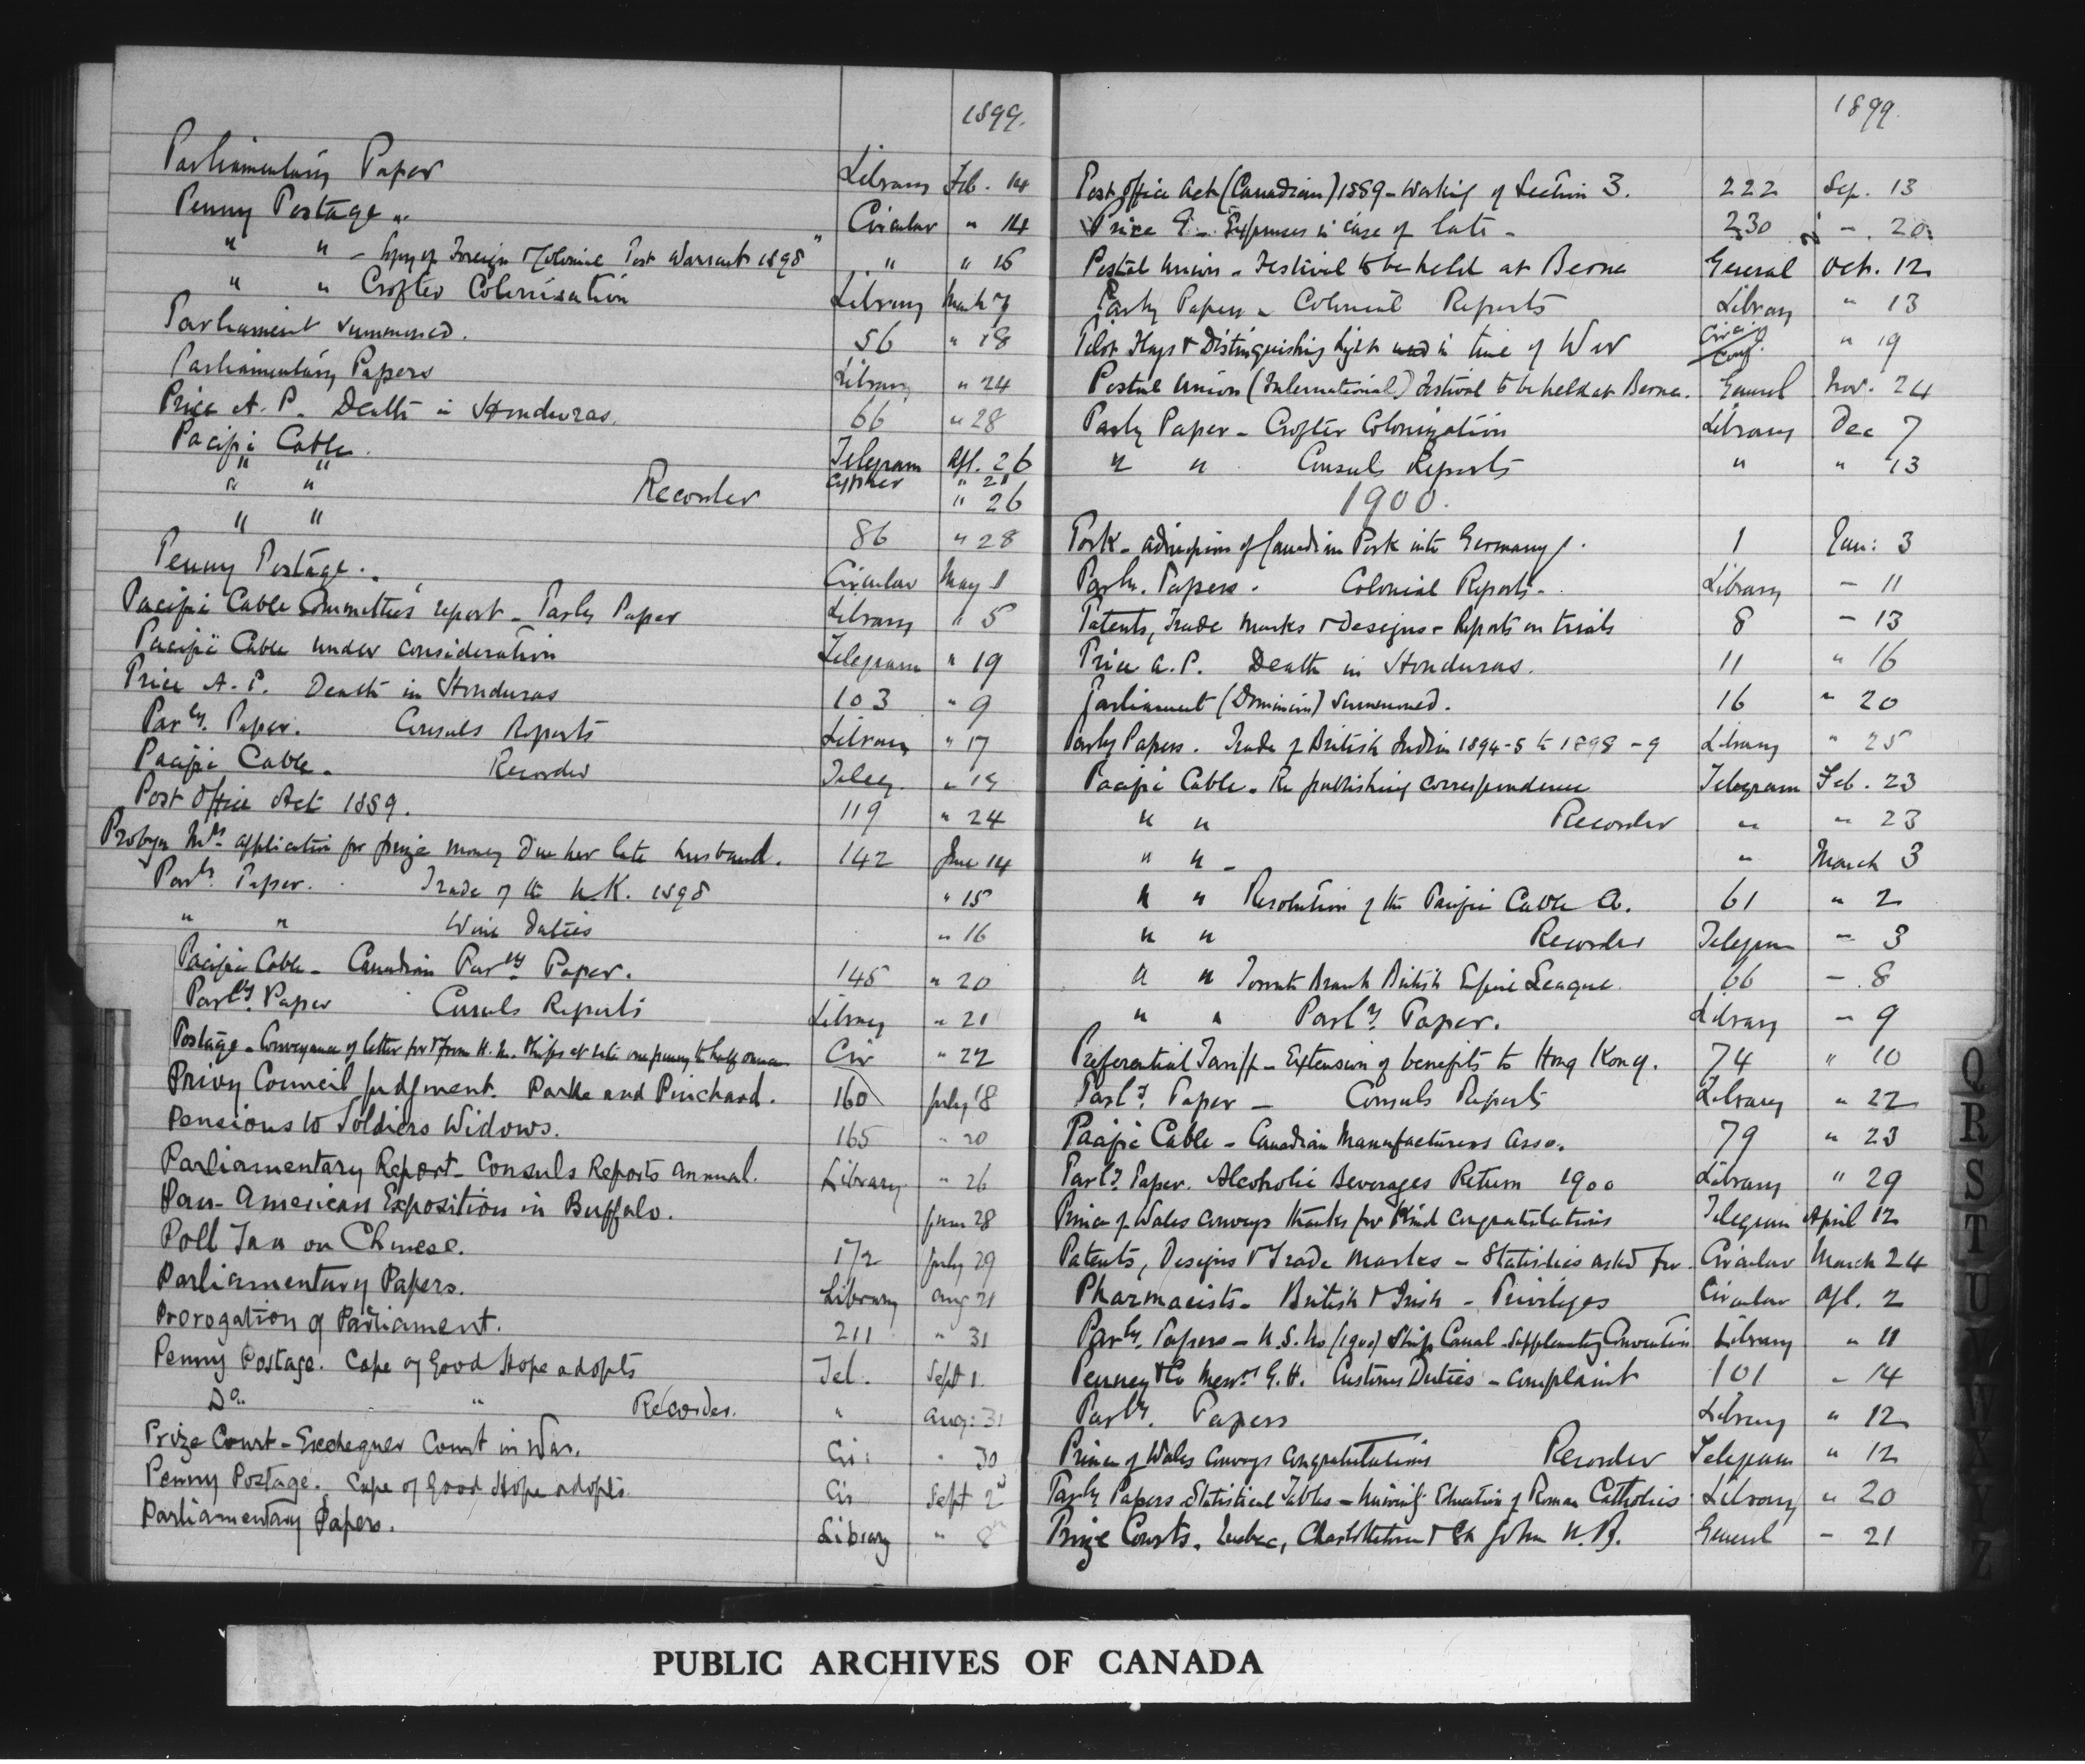 1899.
Parliamentary Paper Library Feb. 14
Penny Postage " Circular " 14
" " - Copy of Foreign & Colonial Post Warrant 1898 " " 16
" " Crofter Colonisation Library March 7
Parliament summoned. 56 " 18
Parliamentary Papers Library " 24
Price A. P. Death in Honduras. 66 " 28
Pacific Cable. Telegram Apl. 26
" " cypher " 21
" " Recorder " 26
" " 86 " 28
Penny Postage. Circular May 1
Pacific Cable Committee's report - Parly Paper Library " 5
Pacific Cable under consideration Telegram " 19
Price A. P. Death in Honduras 103 " 9
Parly. Paper. Consuls Reports Library " 17
Pacific Cable. Recorder Teleg. " 19
Post Office Act 1889. 119 " 24
Probyn Mrs application for prize money due her late husband. 142 June 14
Parly. Paper. Trade of the U.K. 1898 " 15
" " Wine Duties " 16
Pacific Cable - Canadian Parly Paper. 145 " 20
Parly Paper Consuls Reports Library " 21
Postage - Conveyance of letter for & from H. M. Ships at rate one penny to half ounce Cir " 22
Privy Council judgment. Parke and Pinchard. 160 July 18
Pensions to Soldiers Widows. 165 " 20
Parliamentary Report - Consuls Reports annual. Library " 26
Pan-American Exposition in Buffalo. June 28
Poll Tax on Chinese. 172 July 29
Parliamentary Papers. Library Aug 21
Prorogation of Parliament. 211 " 31
Penny Postage. Cape of Good Hope adopts Tel. Sept 1.
Do. " Recorder. " Aug: 31
Prize Court - Exchequer Court in War. Cir: " 30
Penny Postage. Cape of Good Hope adopts. Cir Sept 2
Parliamentary Papers. Library " 8
1899.
Post Office Act (Canadian) 1889 - Working of Section 3. 222 Sep. 13
Price E. - Expenses in case of late - 230 " . 20
Postal Union - Festival to be held at Berne General Oct. 12
Parly Papers - Colonial Reports Library " 13
Pilot Flags & Distinguishing lights used in time of War Circ. Conf. " 19
Postal Union (International) Festival to be held at Berne. General Nov. 24
Parly Paper - Crofter Colonization Library Dec 7
" " Consuls Reports " " 13
1900.
Pork - admission of Canadian Pork into Germany. 1 Jan: 3
Parly. Papers. Colonial Reports. Library - 11
Patents, Trade Marks & Designs - Reports on trials 8 - 13
Price A. P. Death in Honduras. 11 " 16
Parliament (Dominion) summoned. 16 " 20
Parly Papers. Trade of British India 1894-5 to 1898-9 Library " 25
Pacific Cable. Re publishing correspondence Telegram Feb. 23
" " Recorder " " 23
" " - " March 3
" " Resolution of the Pacific Cable 61 " 2
" " Recorder Telegram - 3
" " Toronto Branch British Empire League 66 - 8
" " Parly. Paper. Library - 9
Preferential Tariff - Extension of benefits to Hong Kong. 74 " 10
Parly. Paper - Consuls Reports Library " 22
Pacific Cable - Canadian Manufacturers Asso. 79 " 23
Parly. Paper. Alcoholic Beverages Return 1900 Library " 29
Prince of Wales conveys thanks for kind congratulations Telegram April 12
Patents, Designs & Trade Marks - Statistics asked for. Circular March 24
Pharmacists - British & Irish - Privileges Circular Apl. 2
Parly. Papers - U.S. No (1900) Ship Canal - Supplementary Convention Library " 11
Penney & Co Messrs G. H. Customs Duties - complaint 101 - 14
Parly. Papers Library " 12
Prince of Wales conveys congratulations Recorder Telegram " 12
Parly Papers Statistical Tables - Education of Roman Catholics Library " 20
Prize Courts. Quebec, Charlottetown & St John N.B. General - 21
Q
R
S
T
U
V
W
X
Y
Z
PUBLIC ARCHIVES OF CANADA